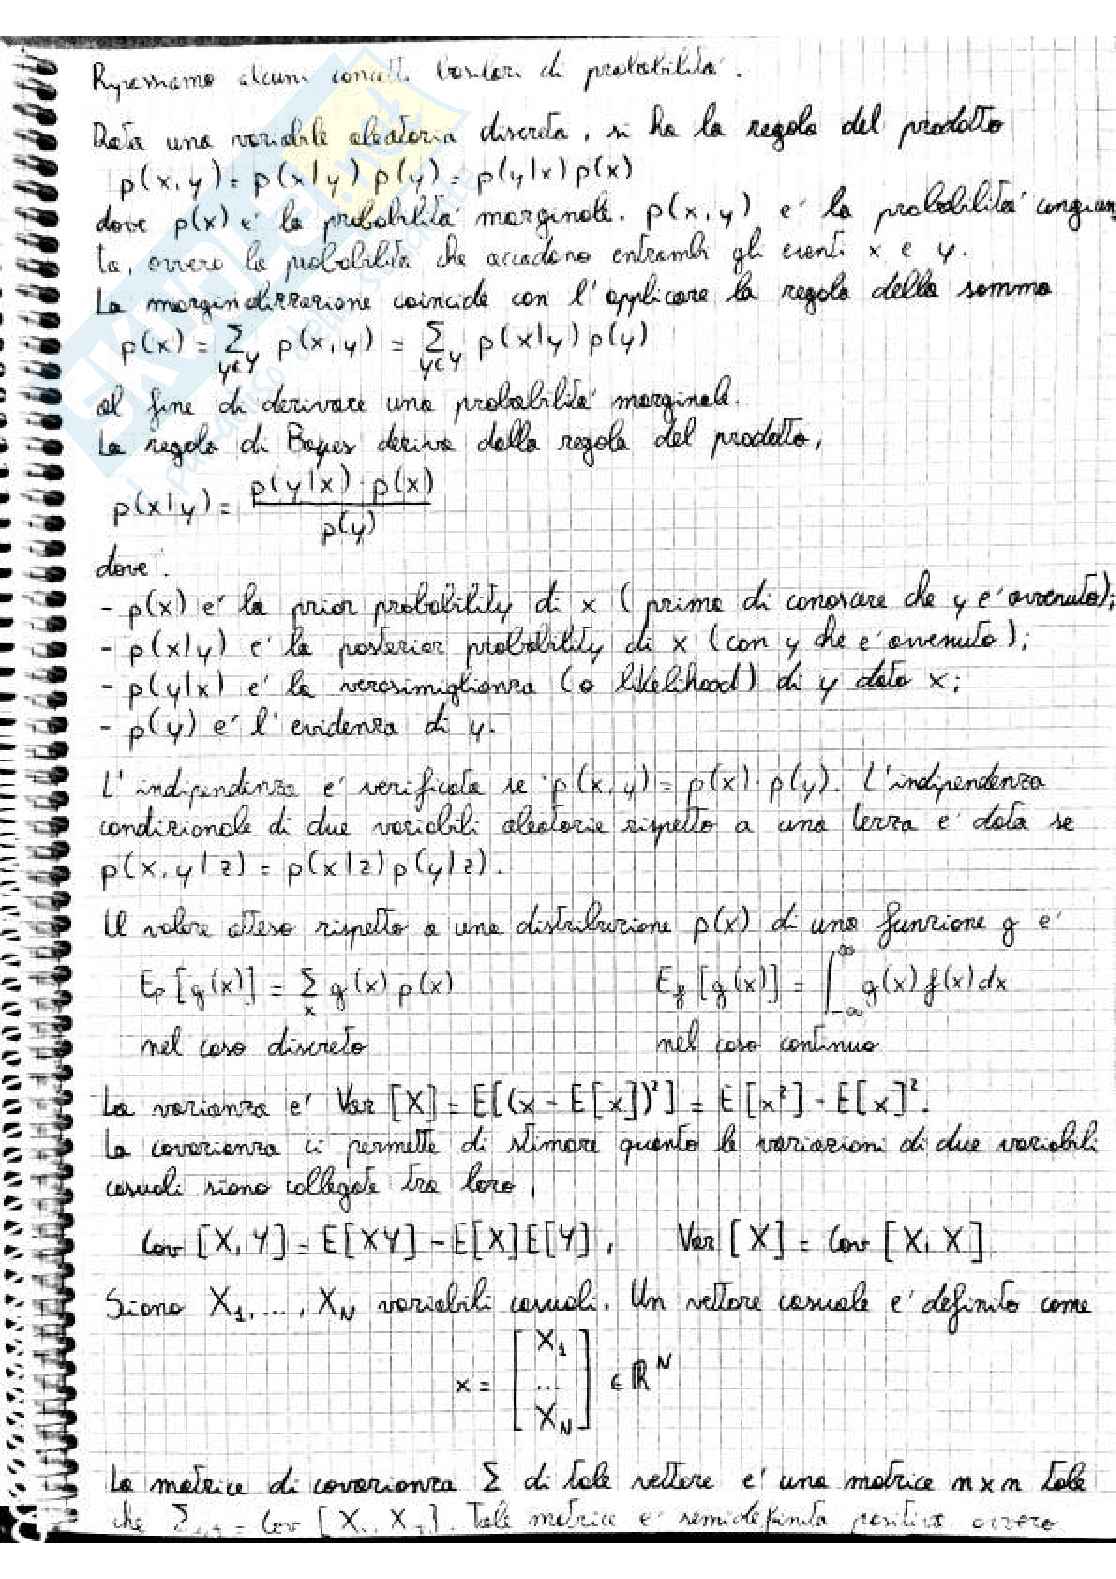 Ripassiamo alcuni concetti basilari di probabilità.
Data una variabile aleatoria discreta, si ha la regola del prodotto
p(x,y) = p(x|y) p(y) = p(y|x) p(x)
dove p(x) e' la probabilità marginale. p(x,y) e' la probabilità congiun
ta, ovvero la probabilità che accadano entrambi gli eventi x e y.
La marginalizzazione coincide con l'applicare la regola della somma
p(x) = Σ p(x,y) = Σ p(x|y) p(y)
y∈Y y∈Y
al fine di derivare una probabilità marginale.
La regola di Bayes deriva dalla regola del prodotto,
p(x|y) = p(y|x)·p(x)
p(y)
dove:
- p(x) e' la prior probability di x (prima di conoscere che y e' avvenuto);
- p(x|y) e' la posterior probability di x (con y che e' avvenuto);
- p(y|x) e' la verosimiglianza (o likelihood) di y dato x;
- p(y) e' l'evidenza di y.
L'indipendenza e' verificata se p(x,y) = p(x)·p(y). L'indipendenza
condizionale di due variabili aleatorie rispetto a una terza e' data se
p(x,y|z) = p(x|z) p(y|z).
Il valore atteso rispetto a una distribuzione p(x) di una funzione g e'
Ep [g(x)] = Σ g(x) p(x) Ef [g(x)] = ∫ g(x) f(x) dx
x -∞ ∞
nel caso discreto nel caso continuo
La varianza e' Var [X] = E[(x - E[x])²] = E[x²] - E[x]².
La covarianza ci permette di stimare quanto le variazioni di due variabili
casuali siano collegate tra loro,
Cov [X,Y] = E[XY] - E[X]E[Y], Var [X] = Cov [X,X]
Siano X₁, ..., X_N variabili casuali. Un vettore casuale e' definito come
x = [X₁ ... X_N] ∈ ℝ^N
La matrice di covarianza Σ di tale vettore e' una matrice n×n tale
che Σ = Cov [X, X]. Tale matrice e' semidefinita positiva ovvero